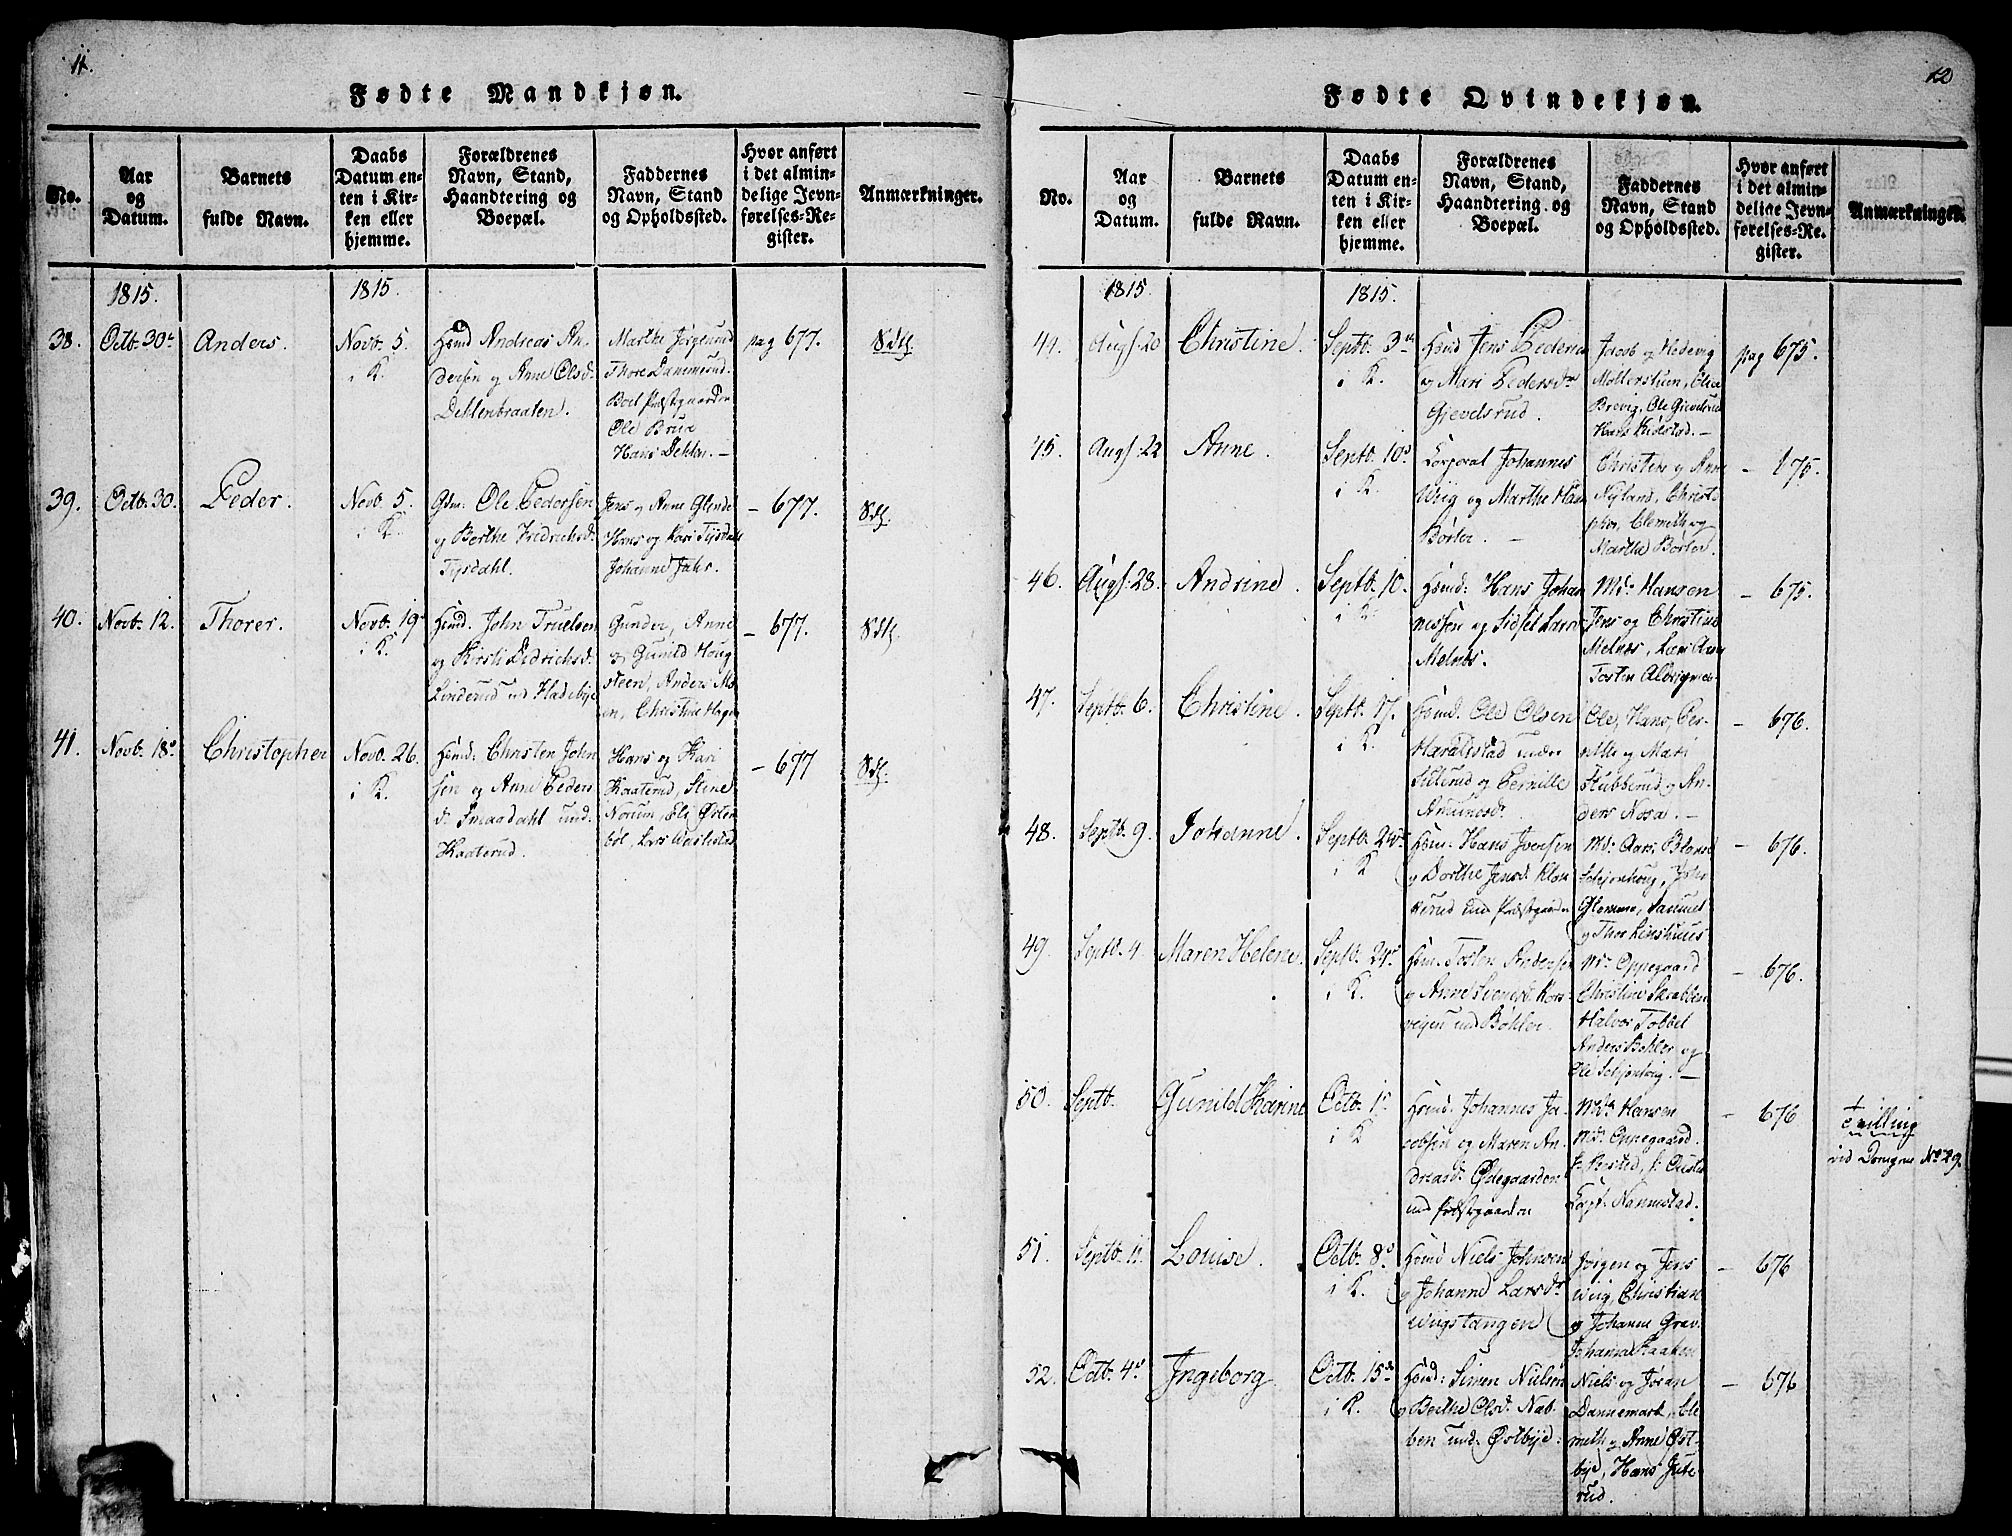 11.
Fødte Mandkjøn.
No.
Aar
og
Datum.
Barnets
fulde Navn.
Daabs
Datum en-
ten i Kir-
ken eller
hjemme.
Forældrenes
Navn, Stand,
Haandtering og
Boepæl.
Faddernes
Navn, Stand
og Opholdssted.
Hvor anført
i det almin-
delige Jevn-
førelses-Re-
gister.
Anmærkninger.
1815.
1815.
38.
Octb. 30
Anders.
Novb. 5.
i K.
Hsmd Andreas An-
dersen og Anne Olsd.
Dehlenbraaten.
Marthe
Thore Dammerud.
Boel Præstgaarden
Ole Brue
Hans Dehlen.—
pag 677.
39.
Octb. 30.
Peder.
Novb. 5.
i K.
Gdm. Ole Pedersen
og Berthe Fredrichsd.
Tysdahl.
Jens og Anne Glende
Hans og Kari Tysdahl
Johanne Fahr.
— 677.
40.
Novb. 12.
Thorer.
Novb. 19
i K.
Hsmd. John Truelsen
og Kirsti Didrichsd.
Linderud und Hadebye
Gunder, Anne
og Gunild Houg
steen, Anders Mo-
en, Christine Hagen
— 677.
41.
Novb. 18
Christopher
Novb. 26.
i K.
Hsmd. Christen John
sen og Anne Peders
d. Smaadahl und.
Kaaterud.
Hans og Kari
Kaaterud, Stine
Norum, Eli Østen
bøl, Lars
— 677
12
Fødte Qvindekjøn.
No.
Aar
og
Datum.
Barnets
fulde Navn.
Daabs
Datum en-
ten i Kir-
ken eller
hjemme.
Forældrenes
Navn, Stand,
Haandtering og
Boepæl.
Faddernes
Navn, Stand
og Opholdssted.
Hvor anført
i det almin-
delige Jevn-
førelses-Re-
gister.
Anmærkninger.
1815
1815.
44.
Augs. 20
Christine.
Septb. 3
i K.
Hsmd Jens Peders
og Mari Pedersdr
Gjevelsrud.
Jacob og Hedevig
Møllerstuen, Elie
Brevig, Ole Gjevelsrud
Hans —
pag 675.
45.
Augs. 22
Anne.
Septb. 10
i K.
Corporal Johannes
Wiig og Marthe Hans
Børter. —
Christen og Anne
Nyland, Christo
pher, Clemeth og
Marthe Børter.
— 675.
46.
Augs. 28.
Andrine.
Septb. 10.
i K.
Hsmd: Hans Johan
nessen og Sidsel Lars
Melnes.
Md. Hansen
Jens og Christine
Melnes, Lars
Tosten
— 675.
47.
Septb. 6.
Christine.
Septb. 17.
i K.
Hsmd. Ole Olsen
Haralistad under
Suterud og Pernille
Amundsd.
Ole, Hans, Per-
nille og Mari
Stubberud og An-
ders Nosa. —
— 676.
48.
Septb. 9.
Johanne.
Septb. 24
i K
Hsm. Hans Iversen
og Dorthe Jensd. Klon
kerud und Præstgaarden
Md.
Schjønhoug,
Glomme, Samuel
og Thor
— 676.
49.
Septb. 4
Maren Helene.
Septb. 24
i K.
Hsm. Tosten Andersen
og Anne Kors-
veigen und Bøhler.
Md. Oppegaard
Christine Skrabben
Halvor Tobbel
Anders Bøhler og
Ole —
— 676.
50.
Septb.
Gunild Karine
Octb. 1
i K
Hsmd. Johannes Ja-
cobsen og Maren An-
dreasd. Ødegaarden
und Præstgaarden
Md. Hansen
Md. Oppegaard.
Capt. Nannestad.
— 676
Tvilling
vid Drengene No 29.
51.
Septb. 11
Louise.
Octb. 8
i K.
Hsmd Niels Johnsen
og Johanne Larsdr
Wiigstangen
Jørgen og Jens
Wiig, Christian
og Johanne Grav.
Johanne
— 676
52.
Octb. 4
Ingeborg
Octb. 15
i K.
Hsmd: Simen Nielsen
og Berthe Olsd. Nab-
ben und: Østbye:
Niels og Joran
Dannemark, Cle
meth og Anne Øst-
bye, Hans Jute
rud.
— 676